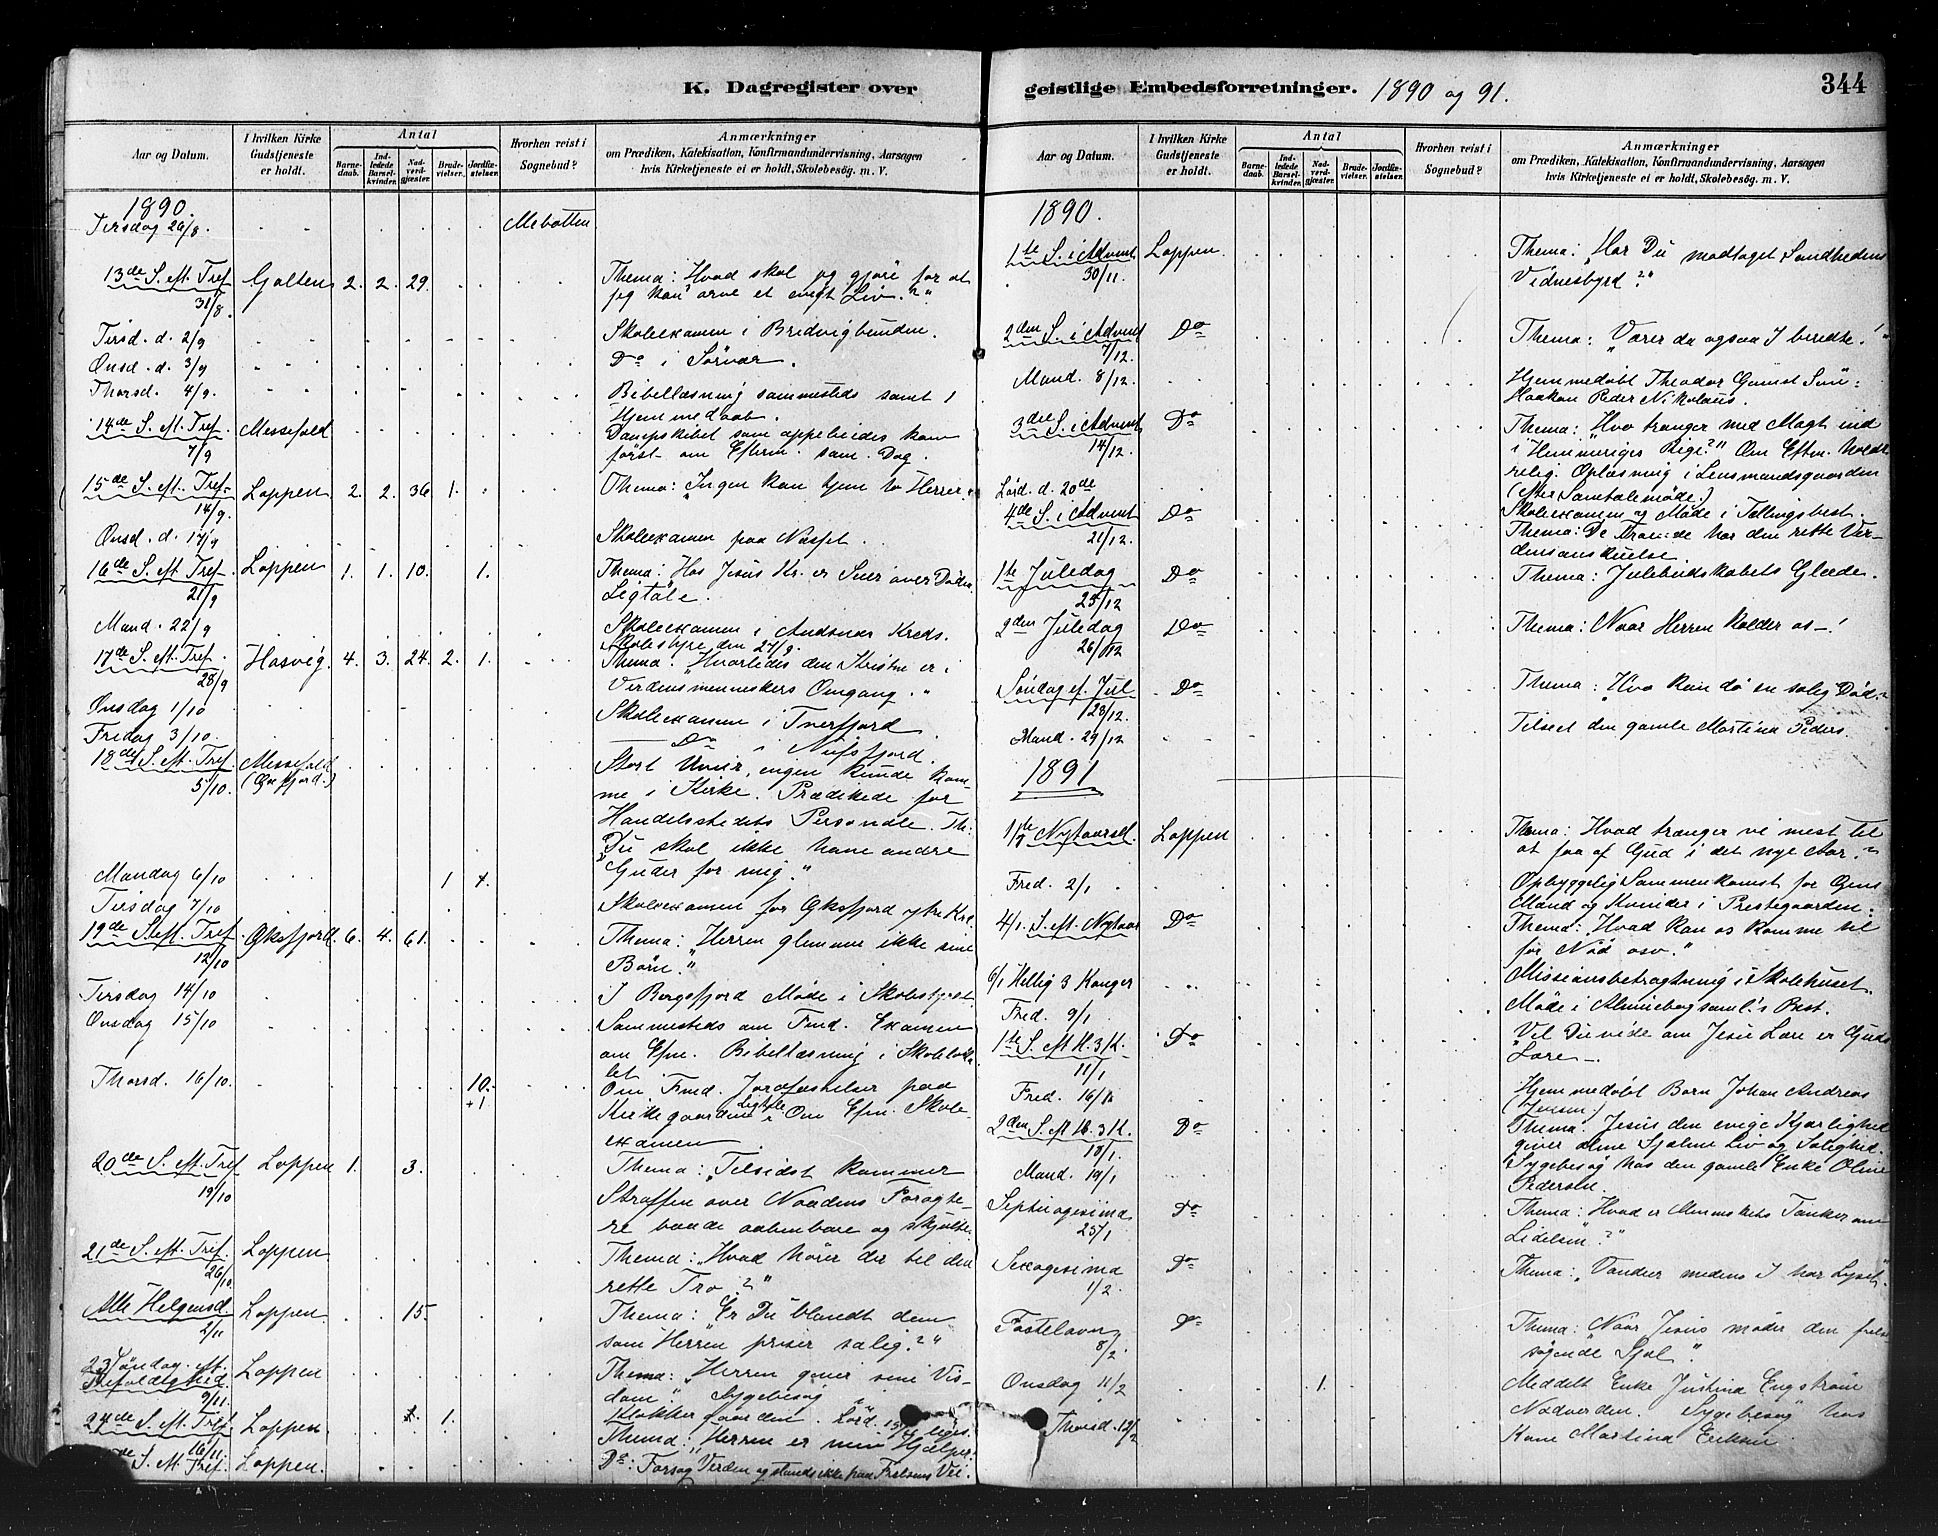 K. Dagregister over
geistlige Embedsforretninger. 1890 og 91.
344
Aar og Datum.
I hvilken Kirke Gudstjeneste er holdt.
Antal
Barnedaab.
Indledede Barselkvinder.
Nadverdgjæster.
Brudevielser.
Jordfæstelser.
Hvorhen reist i Sognebud?
Anmærkninger
om Prædiken, Katekisation, Konfirmandundervisning, Aarsagen
hvis Kirketjeneste ei er holdt, Skolebesøg. m. V.
1890.
Tirsdag 26/8. Mebotten
13de S. eft. Tref. Galten 2. 2. 29. Thema: Hvad skal jeg gjøre for at
31/8. jeg kan arve et evigt Liv.?"
Tirsd. d. 2/9 Skoleexamen i Bredvigbunden.
Onsd. d. 3/9 Do i Sørvær.
Thorsd. 4/9. Bibellæsning sammesteds samt 1
Hjemmedaab.
14de S. eft. Tref. Messefald Dampskibet som oppebiedes kom
7/9 først om Efterm. sam. Dag.
15de S. eft. Tref. Loppen 2. 2. 36 1. Thema: "Ingen kan tjene to Herrer."
14/9.
Onsd. d. 17/9 Skoleexamen paa Næsset.
16de S. eft. Tref. Loppen 1. 1. 10. 1. Thema: Hos Jesus Kr. er Seier over Døden
21/9 Ligtale.
Mand. 22/9 Skoleexamen i Andsnæs Kreds.
Skolestyre den 27/9.
17de S. eft. Tref. Hasvig. 4. 3. 24. 2. 1. Thema: "Hvorledes den Kristne er i
28/9 Verdensmenneskers Omgang."
Onsdag 1/10 Skoleexamen i Tverfjord
Fredag 3/10. Do i Nufsfjord.
18de S. eft. Tref. Messefald Stort Uveir, ingen kunde kom-
5/10. (Øxfjord.) me i Kirke. Prædikede for
Handelsstedets Personale. Th:
"Du skal ikke have andre
Mandag 6/10 1 +. Guder for mig."
Tirsdag 7/10 Skoleexamen for Øksfjord ytre Kre.
19de S. eft. Tref. Øksfjord. 6. 4. 61. Thema: "Herren glemmer ikke sine
12/10 Børn."
Tirsdag 14/10 I Bergsfjord Møde i Skolestyret
Onsdag 15/10 Sammesteds om Fmd. Examen
om Efm. Bibellæsning i Skoleloka-
let
Thorsd. 16/10. 10. +1 Om Fmd. Jordfæstelser paa
Kirkegaarden Ligtale Om Efm. Skole
examen
20de S. eft. Tref Loppen 1. 3. Thema: "Tilsidst kommer
19/10 Straffen over Naadens Foragte-
re baade aabenbare og skjulte.
21de S. eft. Tref. Loppen Thema: "Hvad hører der til den
26/10. rette Tro?"
Alle Helgensd. Loppen 15. Thema: "Er Du blandt dem
2/11 som Herren priser salig?"
23 Søndag eft. Trefoldighed. Loppen Thema: "Herren giver sine Vis-
9/11. dom" Sygebesøg i
Klokkergaarden. Lørd. 15/11 liges.
24de S. eft. Tref. Loppen 1. Thema: "Herren er min Hjælper.
16/11.
de S. eft. Tref. Loppen. Do: Forsag Verden og stands ikke paa Frelsens Vei.
Aar og Datum.
I hvilken Kirke Gudstjeneste er holdt.
Antal
Barnedaab.
Indledede Barselkvinder.
Nadverdgjæster.
Brudevielser.
Jordfæstelser.
Hvorhen reist i Sognebud?
Anmærkninger
om Prædiken, Katekisation, Konfirmandundervisning, Aarsagen
hvis Kirketjeneste ei er holdt, Skolebesøg. m. V.
1890.
1te S. i Advent Loppen. Thema: "Har Du modtaget Sandhedens
30/11. Vidnesbyrd?"
2den S. i Advent Do Thema: "Værer da ogsaa I beredte!"
7/12.
Mand. 8/12. Hjemmedøbt Theodor Søn:
Haakon Peder Nikolaus.
3die S. i Advent Do Thema: "Hvo trænger med Magt ind
14/12. i Himmeriges Rige?" Om Eftm. holdt
relig. Oplæsning i Lensmandsgaarden
Lørd. d. 20de (efter Samtalemøde.)
4de S. i Advent Do Skoleexamen og Møde i Tællingsbest.
21/12. Thema: De Troende har den rette Ver-
densanskuelse
1te Juledag Do Thema: Julebudskabets Glæde.
25/12
2den Juledag Do Thema: Naar Herren kalder os-!
26/12
Søndag ef. Jul Do Thema: "Hvo kan dø en salig Død?
28/12.
Mand. 29/12 Tilseet den gamle Martina Peders.
1891
1/1 Nytaarsd. Loppen Thema: Hvad trænger vi mest til
at faa af Gud i det nye Aar.?
Fred. 2/1 Opbyggelig Sammenkomst for
Mænd og Kvinder i Prestegaarden:
4/1. S. eft. Nytaar Do Thema: "Hvad kan os komme til
for Nød osv."
6/1 Hellig 3 Konger Missionsbetragtning i Skolehuset.
Fred. 9/1 Møde i Best.
1te S. eft. H. 3 K. Do Vil Du vide om Jesu Lære er Guds
11/1 Lære-.
Fred. 16/1 Hjemmedøbt Barn Johan Andreas
(Jensen.)
2den S. eft H. 3 K. Do Thema: Jesus den evige Kjærlighed
18/1. giver alene Sjælene Liv og Salighed.
Mand. 19/1 Sygebesøg hos den gamle Enke Oline
Pedersen.
Septuagesima Do Thema: Hvad er Menneskets Tanker om
25/1 Lidelsen?"
Sexagesima Do Thema: "Vandrer medens I har Lyset.
1/2.
Fastelavn Do Thema: Naar Jesus møder den frelse
8/2. søgende Sjæl".
Onsdag 11/2 1. Meddelt Enke Justina Engstrøm
Nadverden. Sygebesøg hos
Thorsd. 12/2 Kone Martina Eriksen